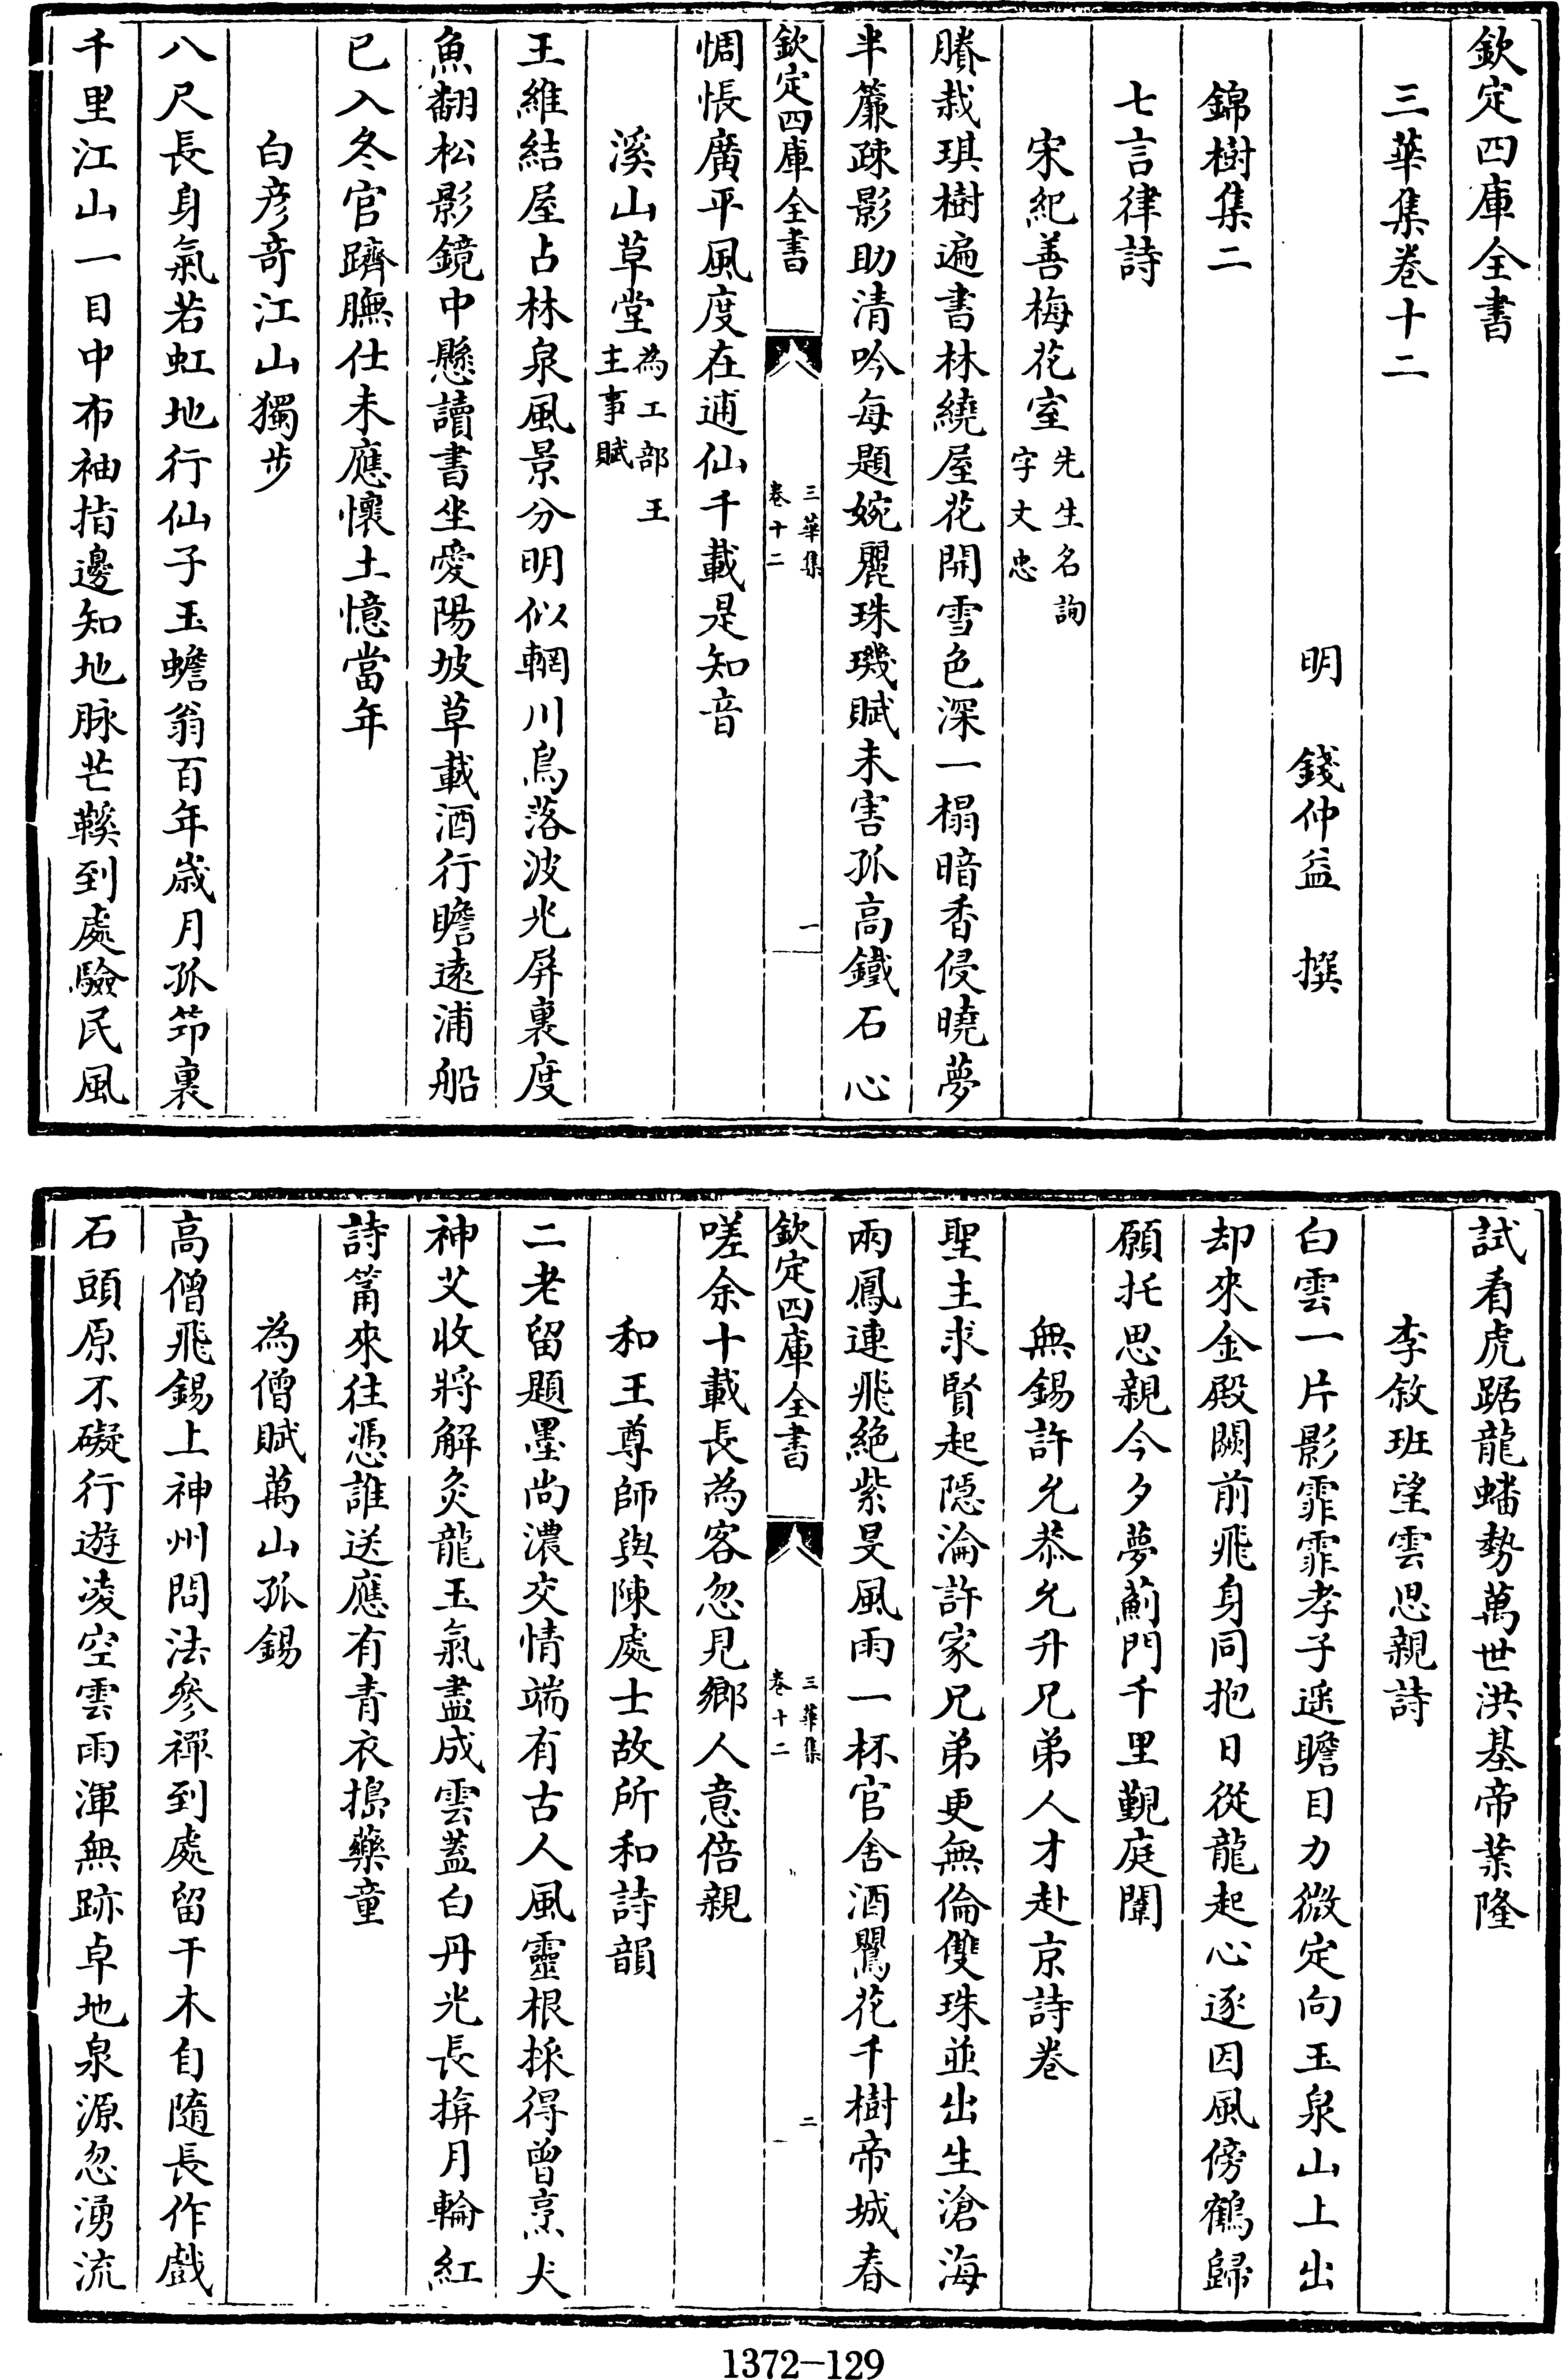 欽定四庫全書
三華集卷十二
明 錢仲益 撰
錦樹集二
七言律詩
宋紀善梅花室先生名詢字文忠
賸栽琪樹遍書林繞屋花開雪色深一榻暗香侵曉夢
半簾疎影助清吟每題婉麗珠璣賦未害孤高鐵石心
欽定四庫全書
三華集
卷十二
一
惆悵廣平風度在逋仙千載是知音
溪山草堂為工部王主事賦
王維結屋占林泉風景分明似輞川鳥落波光屏裏度
魚翻松影鏡中懸讀書坐愛陽坡草載酒行瞻遠浦船
已入冬官躋膴仕未應懷土憶當年
白彦奇江山獨步
八尺長身氣若虹地行仙子玉蟾翁百年歲月孤笻裏
千里江山一目中布袖指邊知地脉芒鞵到處驗民風
試看虎踞龍蟠勢萬世洪基帝業隆
李敘班望雲思親詩
白雲一片影霏霏孝子遥瞻目力微定向玉泉山上出
却來金殿闕前飛身同抱日從龍起心逐因風傍鶴歸
願托思親今夕夢薊門千里覲庭闈
無錫許允恭允升兄弟人才赴京詩卷
聖主求賢起隠淪許家兄弟更無倫雙珠並出生滄海
兩鳳連飛絶紫旻風雨一杯官舍酒鸎花千樹帝城春
欽定四庫全書
三華集
卷十二
二
嗟余十載長為客忽見鄉人意倍親
和王尊師與陳處士故所和詩韻
二老留題墨尚濃交情端有古人風靈根採得曾烹犬
神艾收將解灸龍玉氣盡成雲蓋白丹光長揜月輪紅
詩筩來往憑誰送應有青衣搗藥童
為僧賦萬山孤錫
高僧飛錫上神州問法參禪到處留干木自隨長作戲
石頭原不礙行遊凌空雲雨渾無跡卓地泉源忽湧流
1372-129